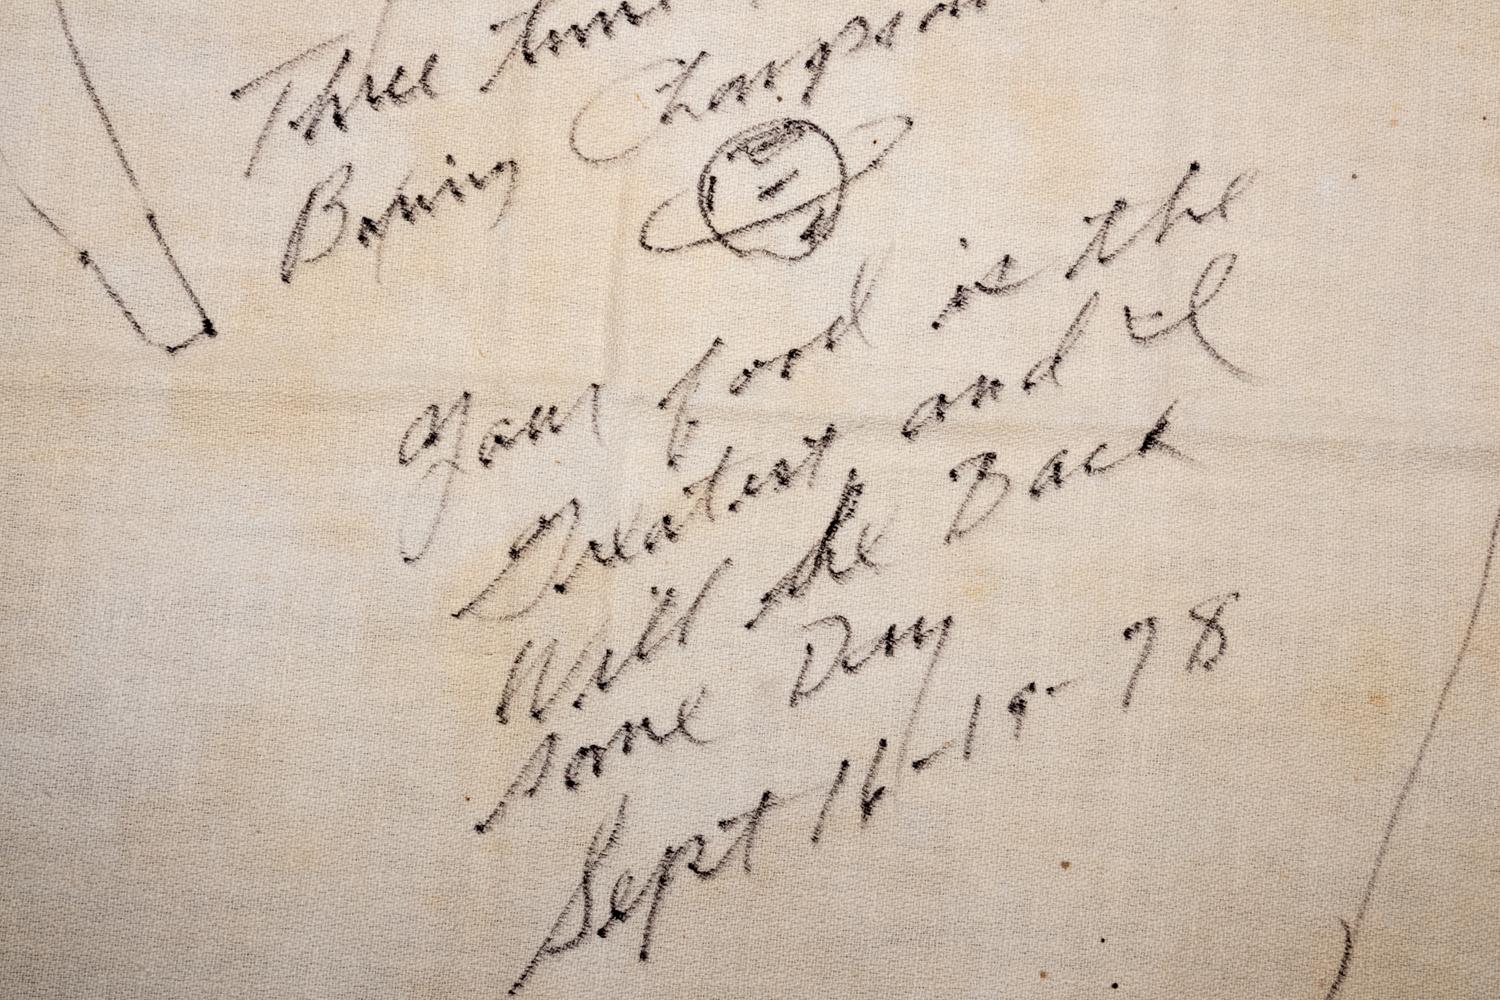 Three time
Boxing Champion
Your food is the
Greatest and I'l
Will be Back
some Day
Sept 16-19-78